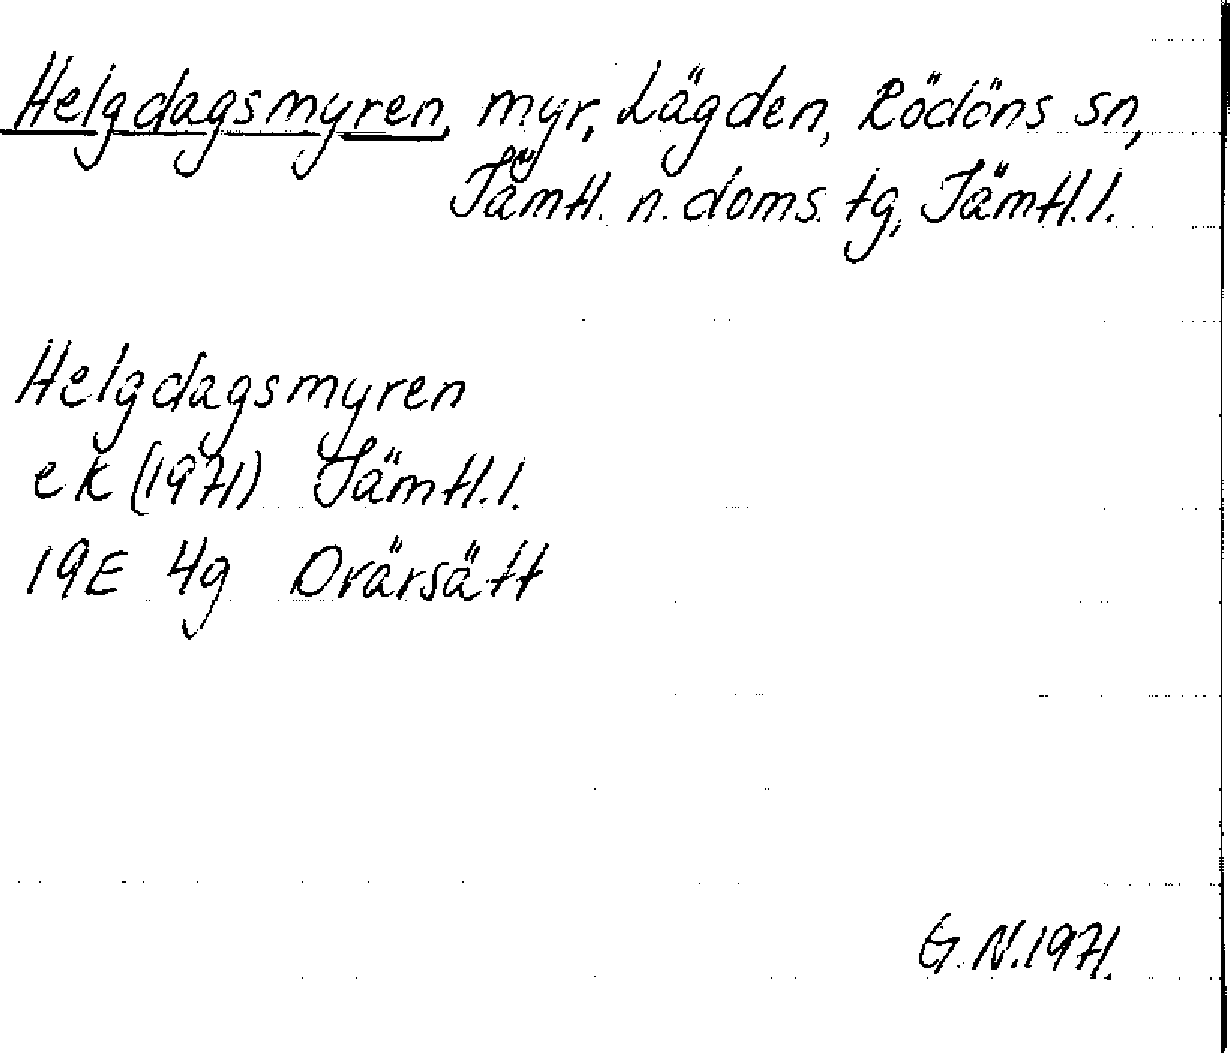 Helgdagsmyren, myr, Lägden, Rödöns sn,
Jämtl. n. doms. tg, Jämtl. l.
Helgdagsmyren
ek (1971) Jämtl. l.
19E 4g Drärsätt
G. N. 1971.